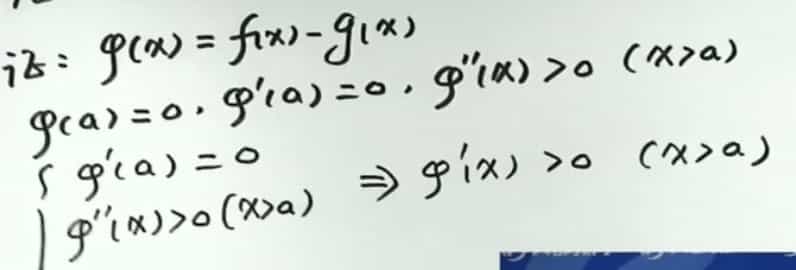 证: φ(x) = f(x) - g(x)
φ(a) = 0 . φ'(a) = 0 . φ''(x) > 0 (x>a)
{ φ'(a) = 0
φ''(x) > 0 (x>a) ⇒ φ'(x) > 0 (x>a)